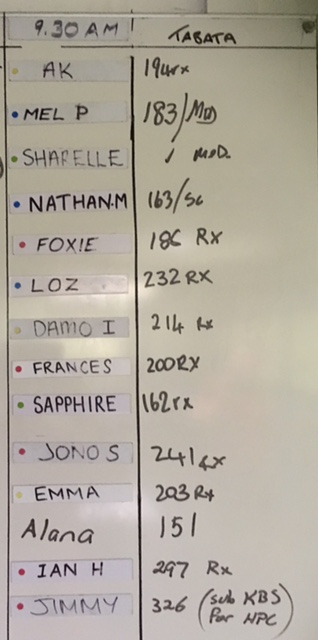 9.30 AM TABATA
AK 194rx
MEL P 183/MOD
SHARELLE / MOD.
NATHAN.M 163/Sc
FOXIE 186 RX
LOZ 232 RX
DAMO I 214 Rx
FRANCES 200RX
SAPPHIRE 162rx
JONO S 241rx
EMMA 203 Rx
Alana 151
IAN H 297 Rx
JIMMY 326 (sub KBS
For HPC)